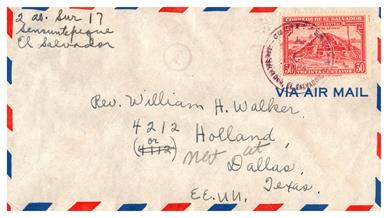 2 av. Sur 17
Sensuntepeque
El Salvador
CORREOS DE EL SALVADOR
50 50
VIA AIR MAIL
Rev. William H. Walker,
4212 Holland,
or
(4112) not at
Dallas,
Texas.
EE.UU.